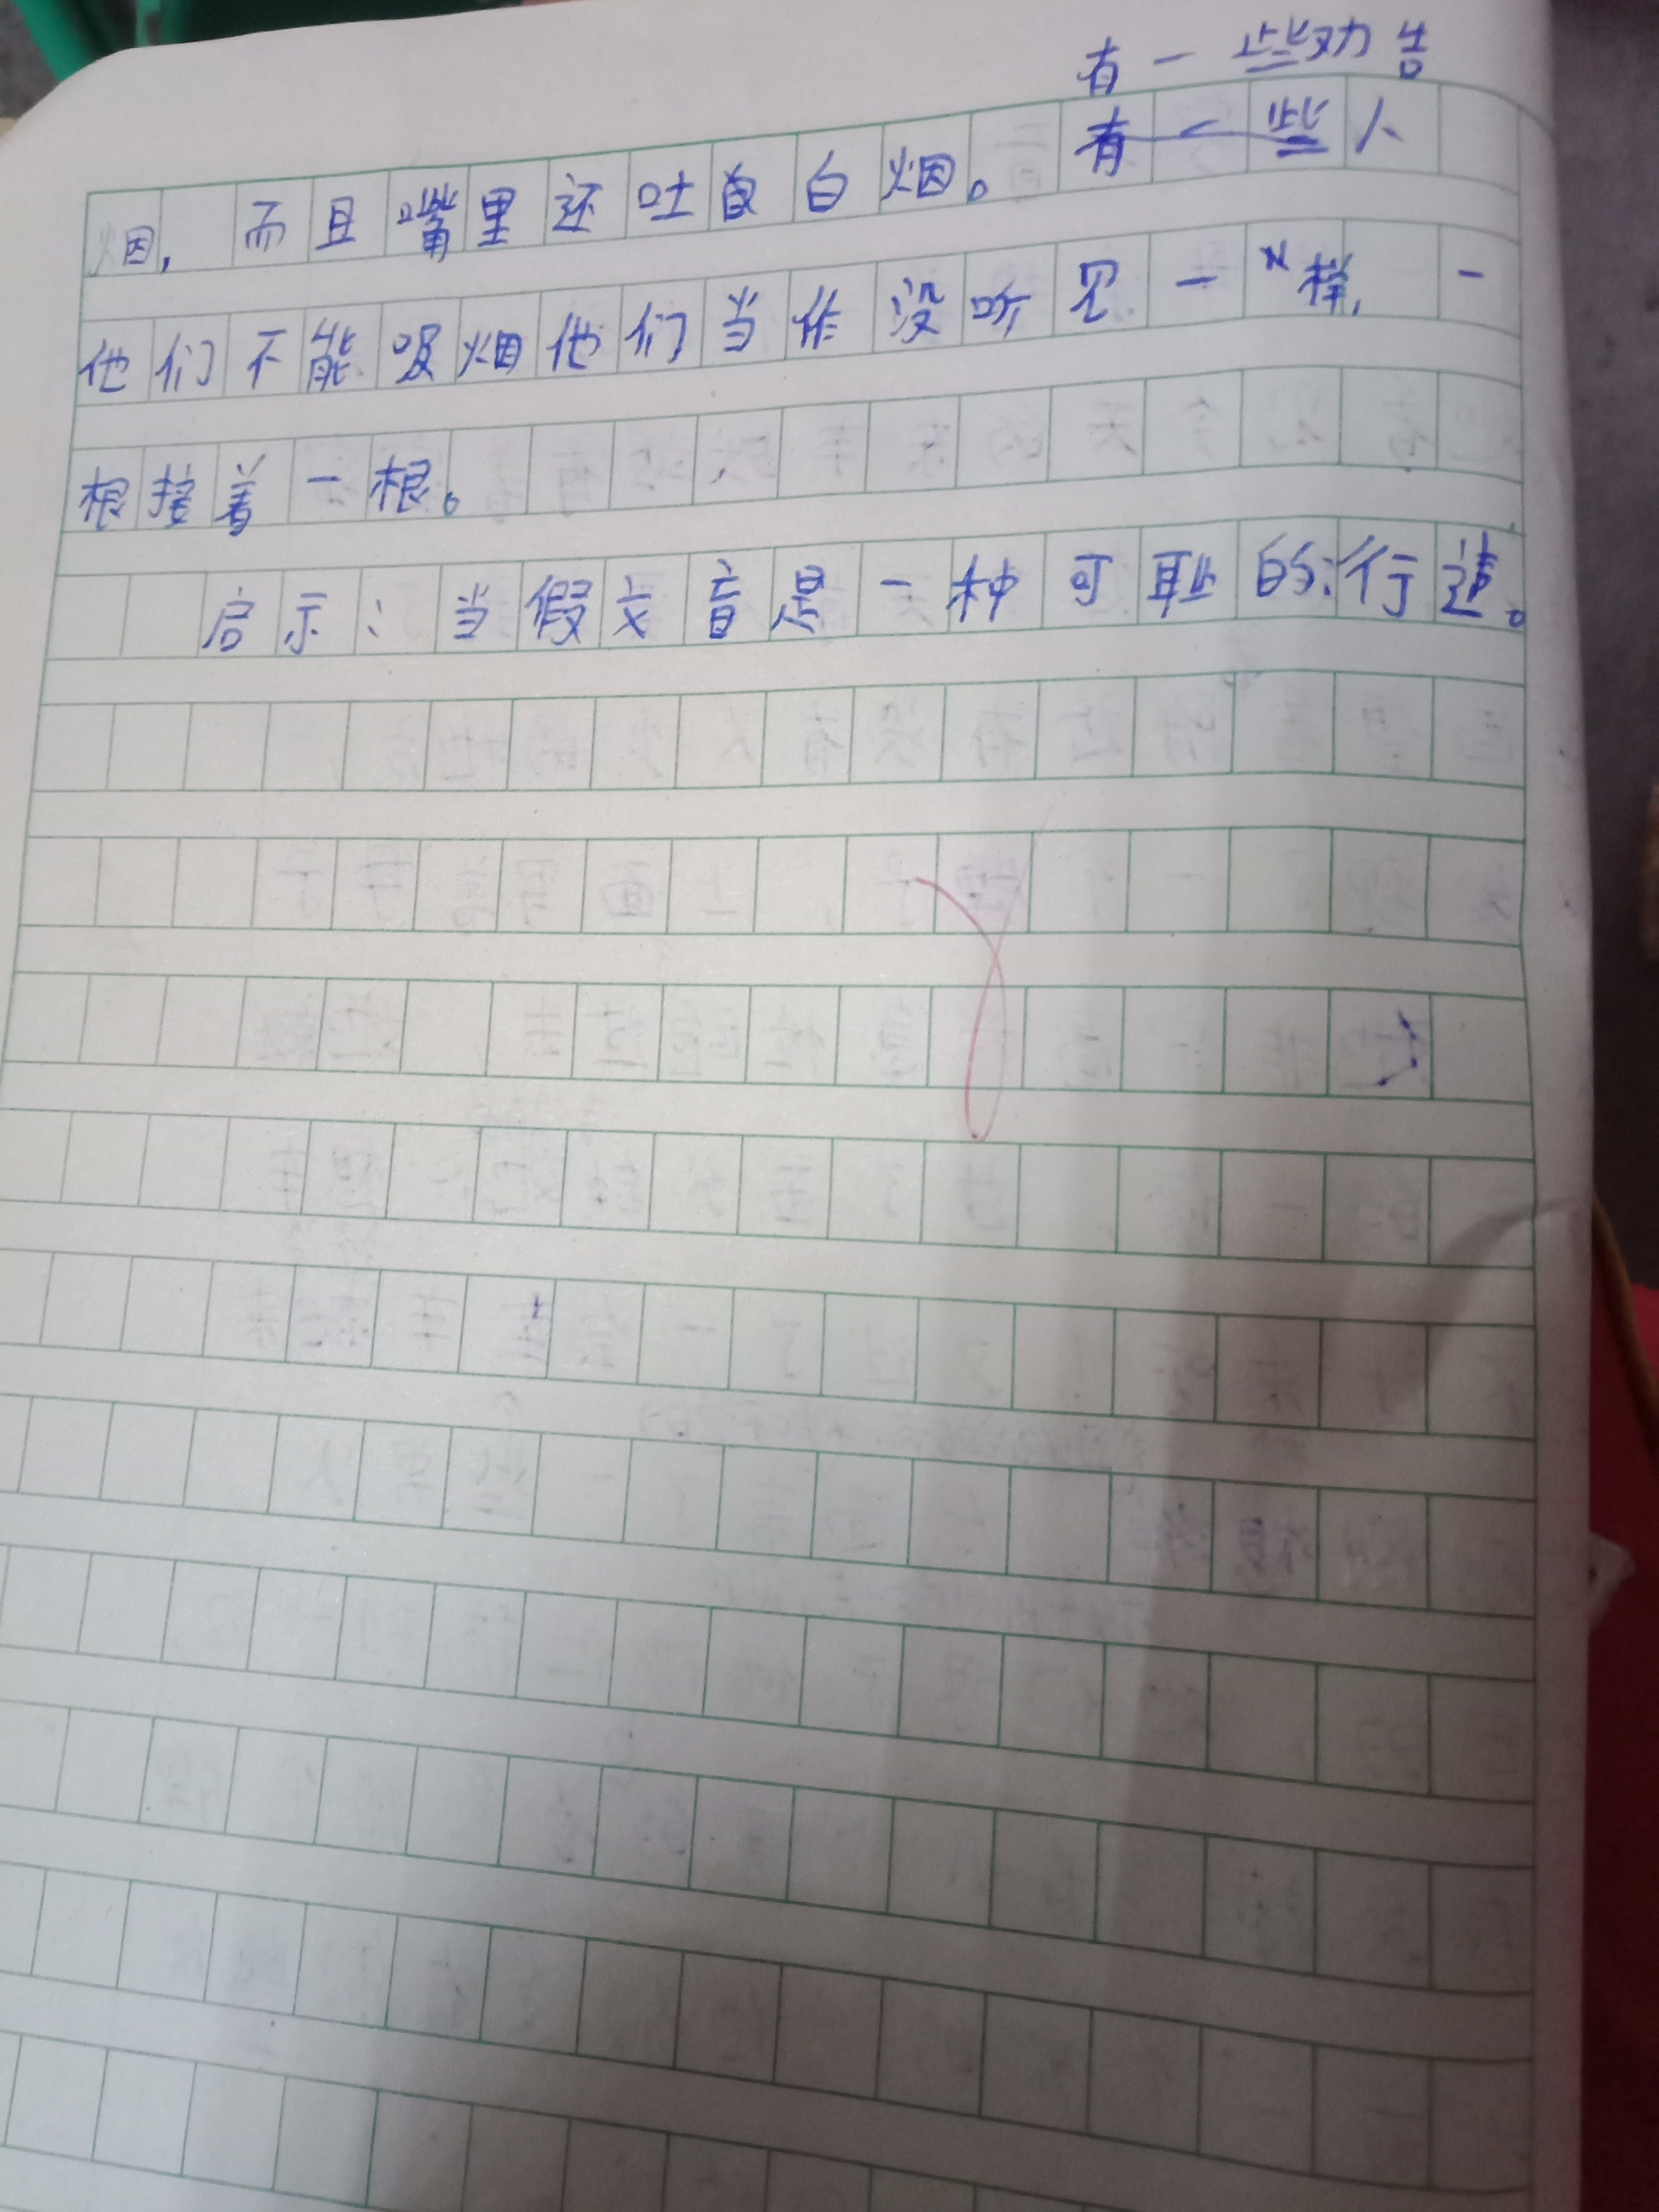 有一些劝告
烟，而且嘴里还吐着白烟。有一些人
他们不能吸烟他们当作没听见一样，一
根接着一根。
启示：当假文盲是一种可耻的行